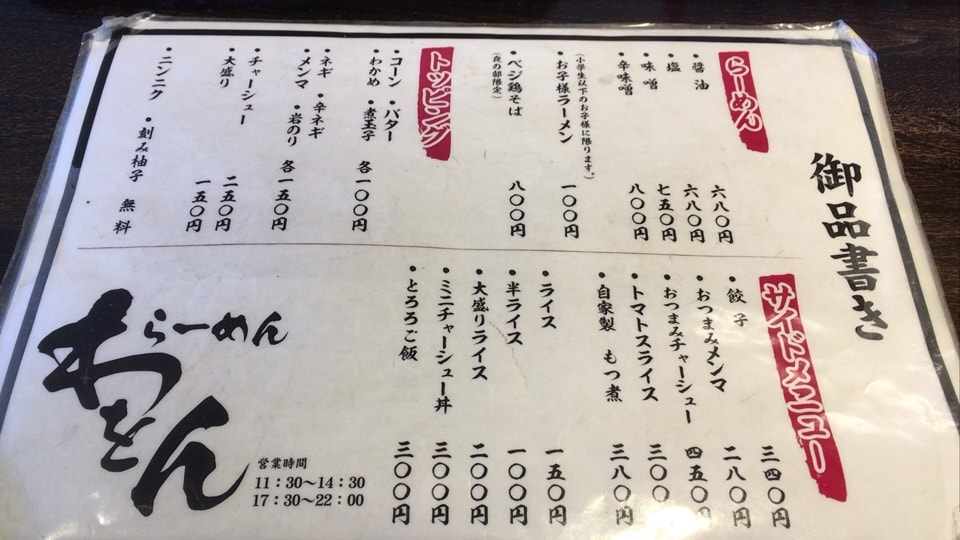 御品書き
らーめん
・醤油 六八〇円
・塩 六八〇円
・味噌 七五〇円
・辛味噌 八〇〇円
・お子様ラーメン 一〇〇円
(小学生以下のお子様に限ります。)
・ベジ鶏そば 八〇〇円
(夜の部限定)
トッピング
・コーン ・バター
・わかめ ・煮玉子 各一〇〇円
・ネギ ・辛ネギ
・メンマ ・岩のり 各一五〇円
・チャーシュー 二五〇円
・大盛り 一五〇円
・ニンニク ・刻み柚子 無料
サイドメニュー
・餃子 三四〇円
・おつまみメンマ 二八〇円
・おつまみチャーシュー 四五〇円
・トマトスライス 三〇〇円
・自家製 もつ煮 三八〇円
・ライス 一五〇円
・半ライス 一〇〇円
・大盛りライス 二〇〇円
・ミニチャーシュー丼 三〇〇円
・とろろご飯 三〇〇円
らーめん
わをん
営業時間
11：30〜14：30
17：30〜22：00